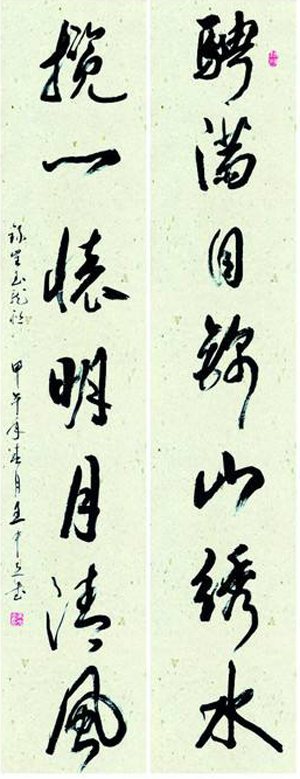 騁滿目錦山绣水
攬一懷明月清風
甲午年春月王中書